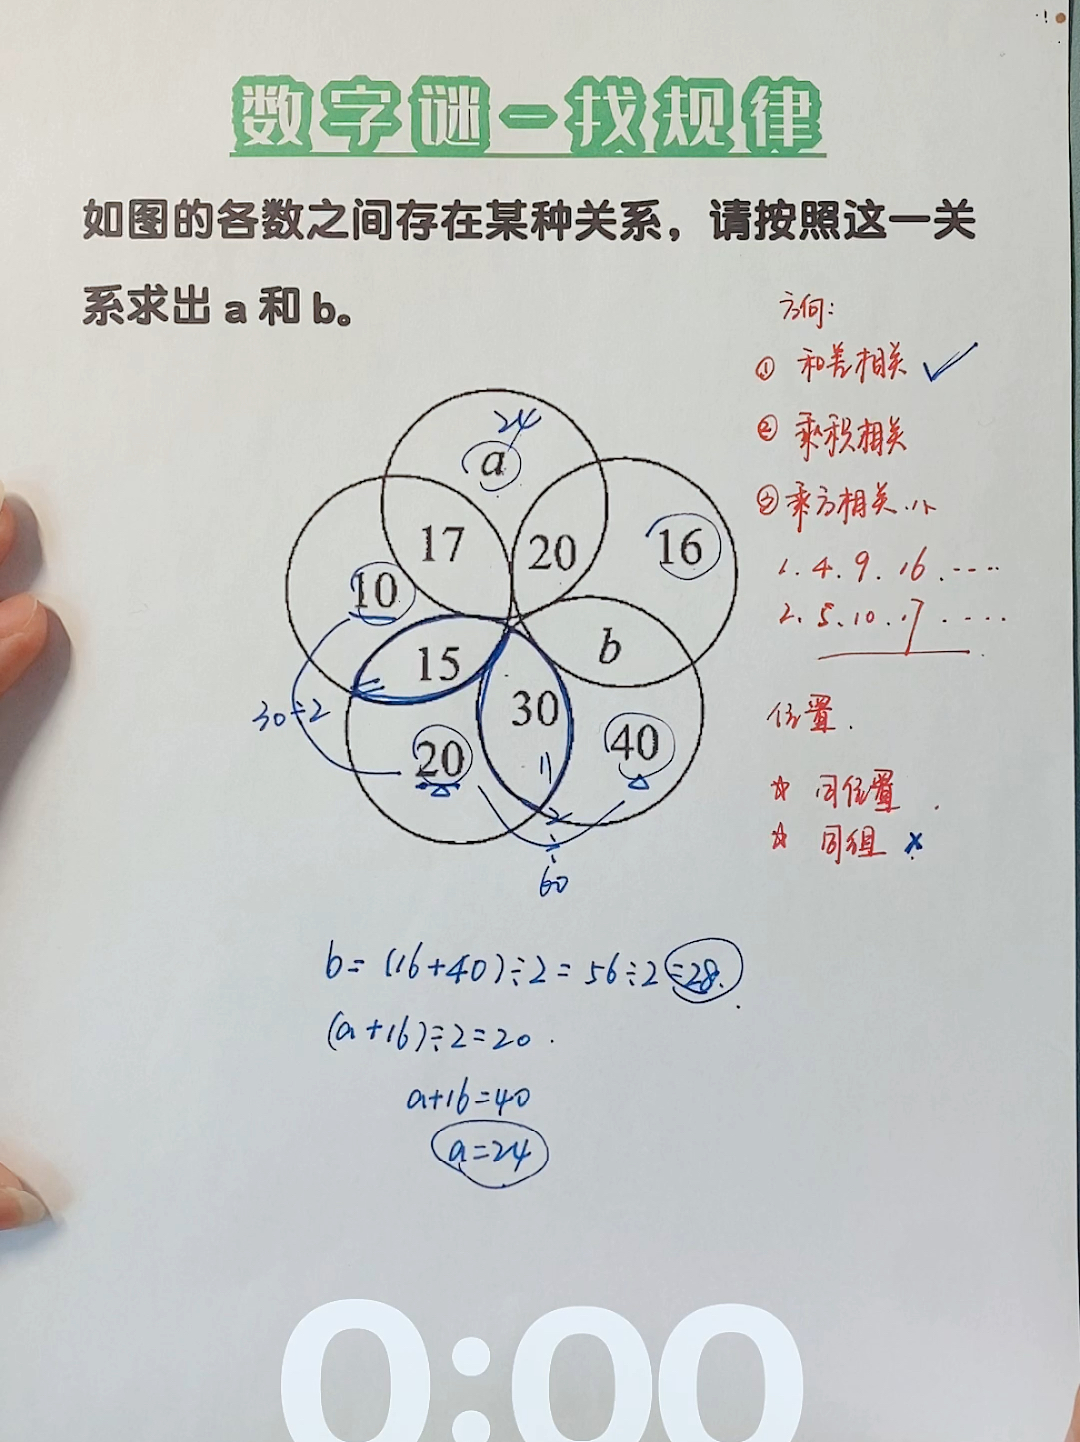 数字谜-找规律
如图的各数之间存在某种关系，请按照这一关
系求出 a 和 b。
方向:
① 和差相关 ✓
② 乘积相关
③ 乘方相关
1. 4. 9. 16. ....
2. 5. 10. 17 ....
位置.
☆ 同位置
☆ 同组 ×
24
a
17
20
16
10
15
b
30
30÷2
20
40
2
÷
60
b=(16+40)÷2=56÷2=28.
(a+16)÷2=20.
a+16=40
a=24
0:00